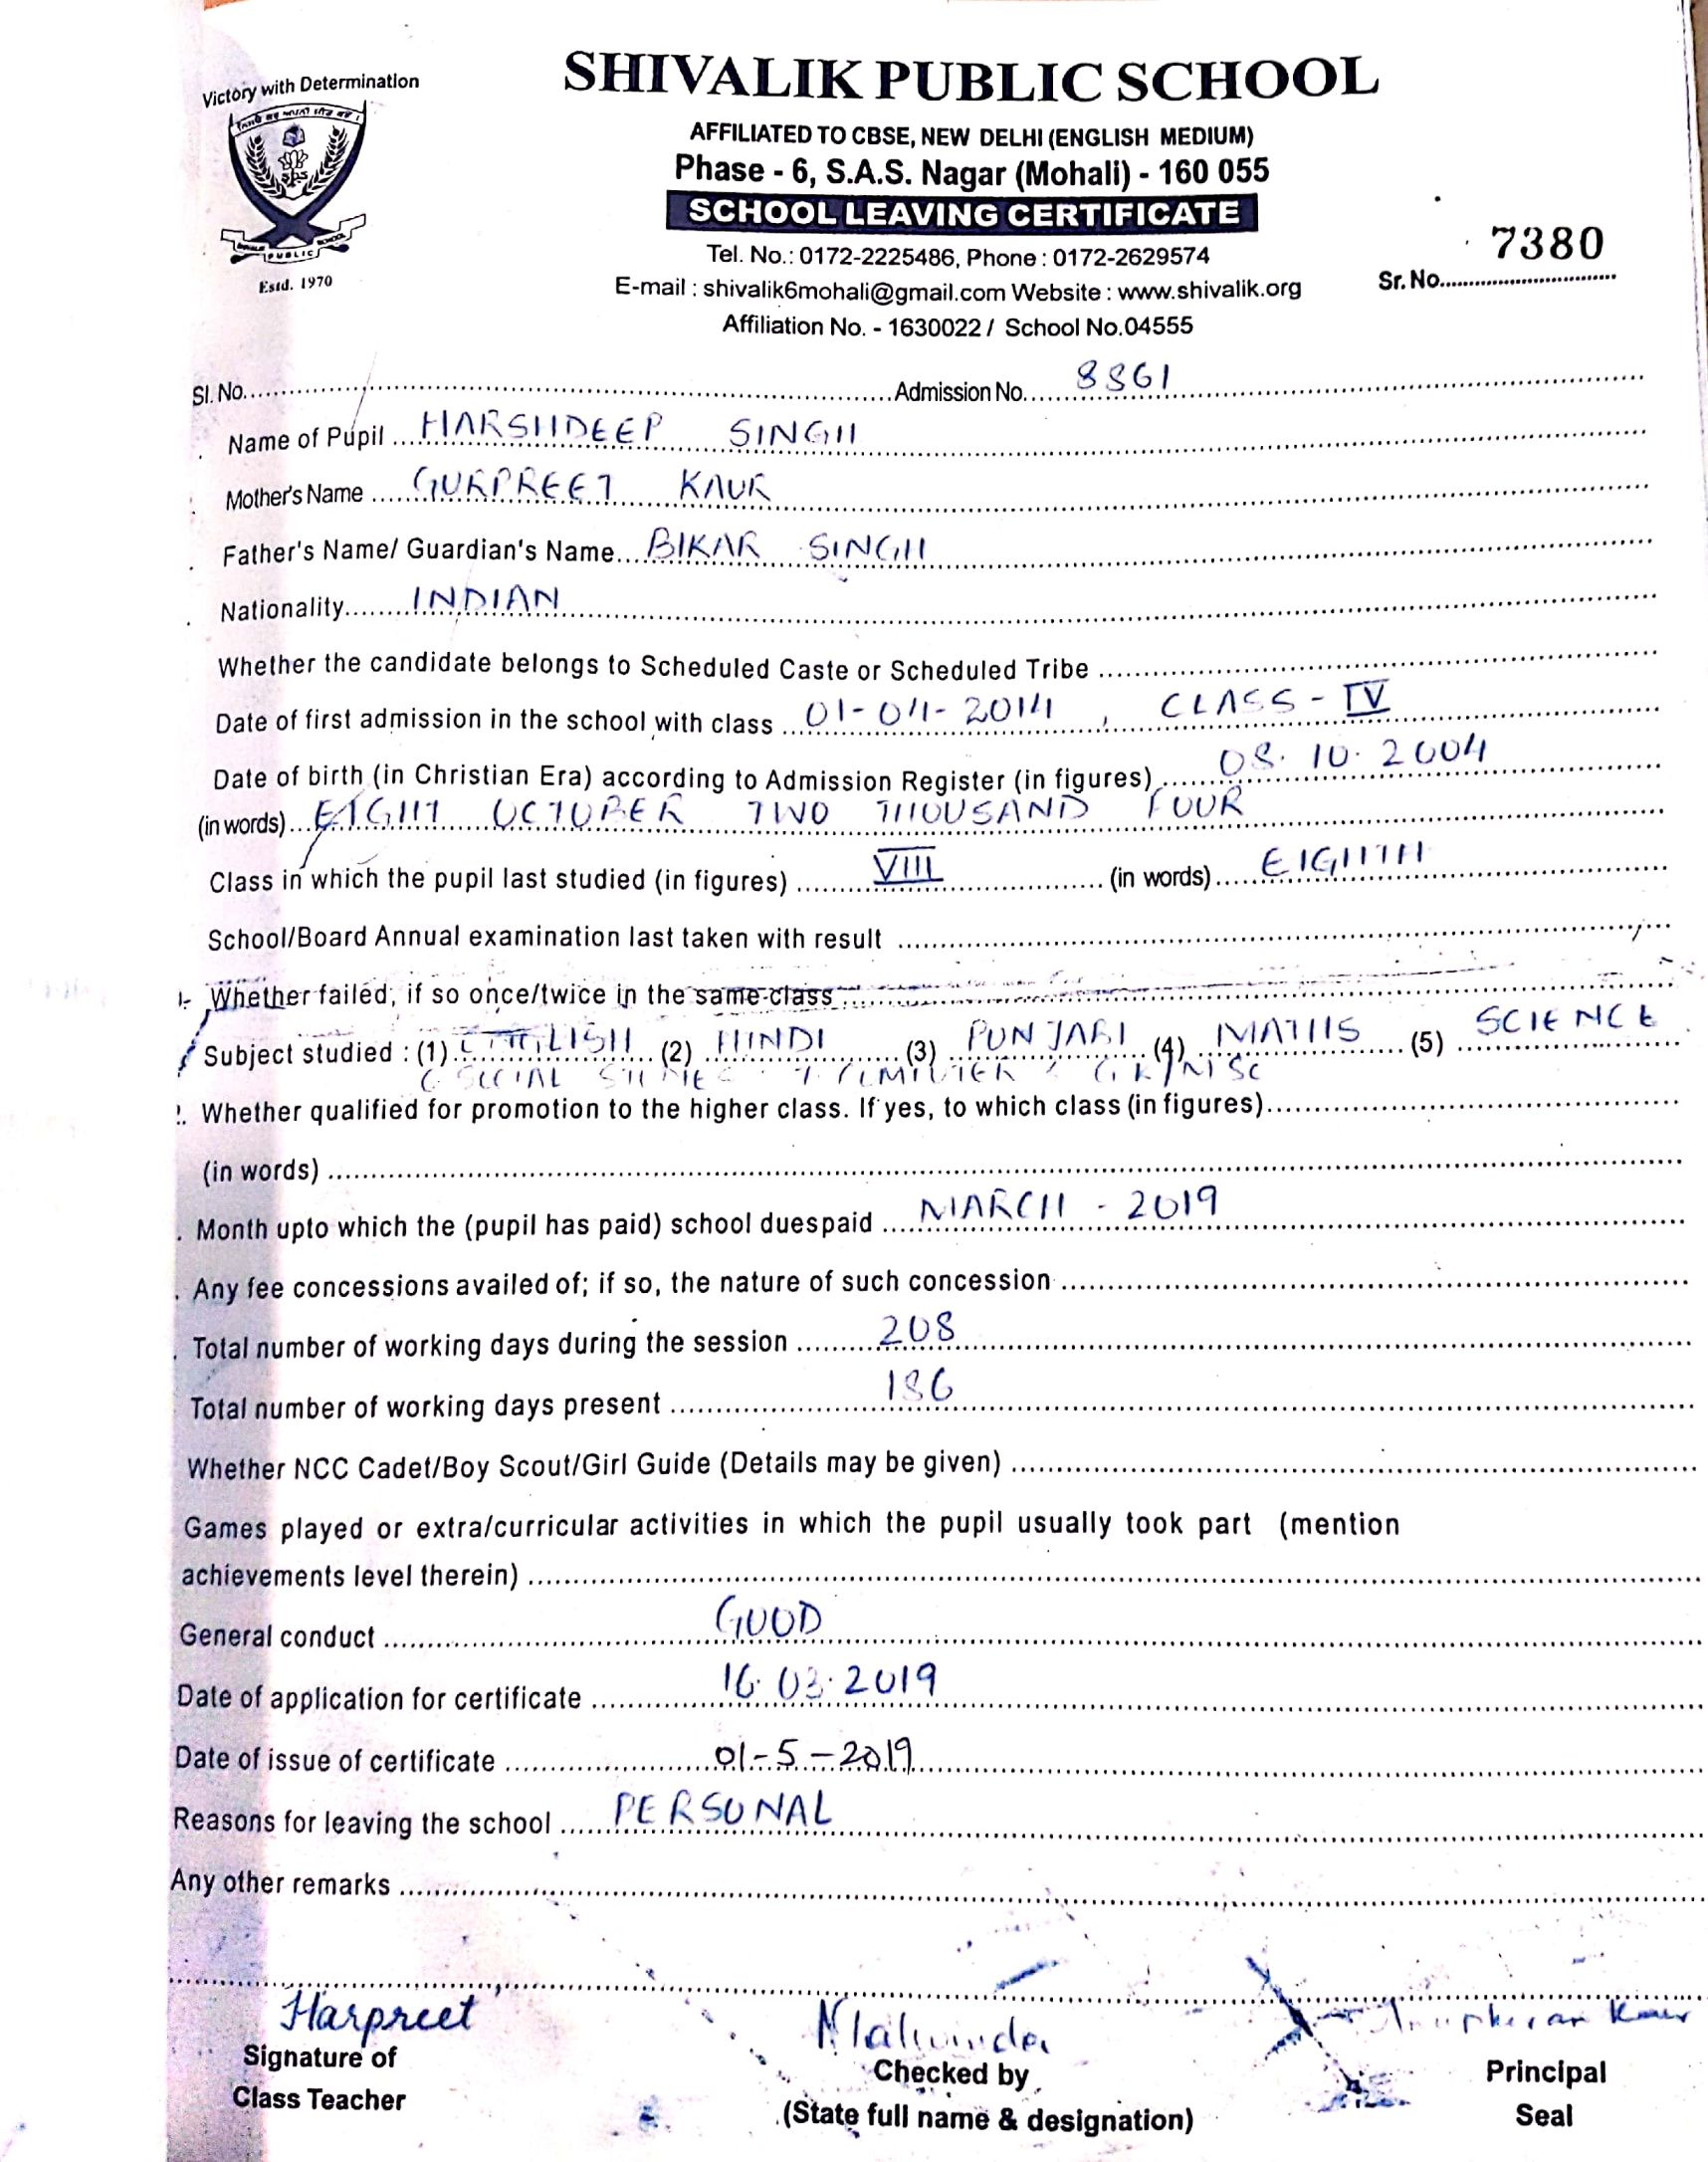 Victory with Determination
SHIVALIK PUBLIC SCHOOL
AFFILIATED TO CBSE, NEW DELHI (ENGLISH MEDIUM)
Phase - 6, S.A.S. Nagar (Mohali) - 160 055
SCHOOL LEAVING CERTIFICATE
Tel. No.: 0172-2225486, Phone : 0172-2629574
E-mail : shivalik6mohali@gmail.com Website : www.shivalik.org
Affiliation No. - 1630022 / School No.04555
sps
PUBLIC SCHOOL
Estd. 1970
Sr. No. 7380
Sl. No. Admission No. 8861
Name of Pupil HARSHDEEP SINGH
Mother's Name GURPREET KAUR
Father's Name/ Guardian's Name BIKAR SINGH
Nationality INDIAN
Whether the candidate belongs to Scheduled Caste or Scheduled Tribe
Date of first admission in the school with class 01-04-2014, CLASS - IV
Date of birth (in Christian Era) according to Admission Register (in figures) 08.10.2004
(in words) EIGHT OCTOBER TWO THOUSAND FOUR
Class in which the pupil last studied (in figures) VIII (in words) EIGHTH
School/Board Annual examination last taken with result
Whether failed, if so once/twice in the same class
Subject studied : (1) ENGLISH (2) HINDI (3) PUNJABI (4) MATHS (5) SCIENCE
6 SOCIAL STUDIES 7 COMPUTER 8 GK/M.SC
Whether qualified for promotion to the higher class. If yes, to which class (in figures)
(in words)
Month upto which the (pupil has paid) school duespaid MARCH - 2019
Any fee concessions availed of; if so, the nature of such concession
Total number of working days during the session 208
Total number of working days present 186
Whether NCC Cadet/Boy Scout/Girl Guide (Details may be given)
Games played or extra/curricular activities in which the pupil usually took part (mention
achievements level therein)
General conduct GOOD
Date of application for certificate 16.03.2019
Date of issue of certificate 01-5-2019
Reasons for leaving the school PERSONAL
Any other remarks
Harpreet
Kaur
Signature of
Class Teacher
Checked by
(State full name & designation)
Principal
Seal